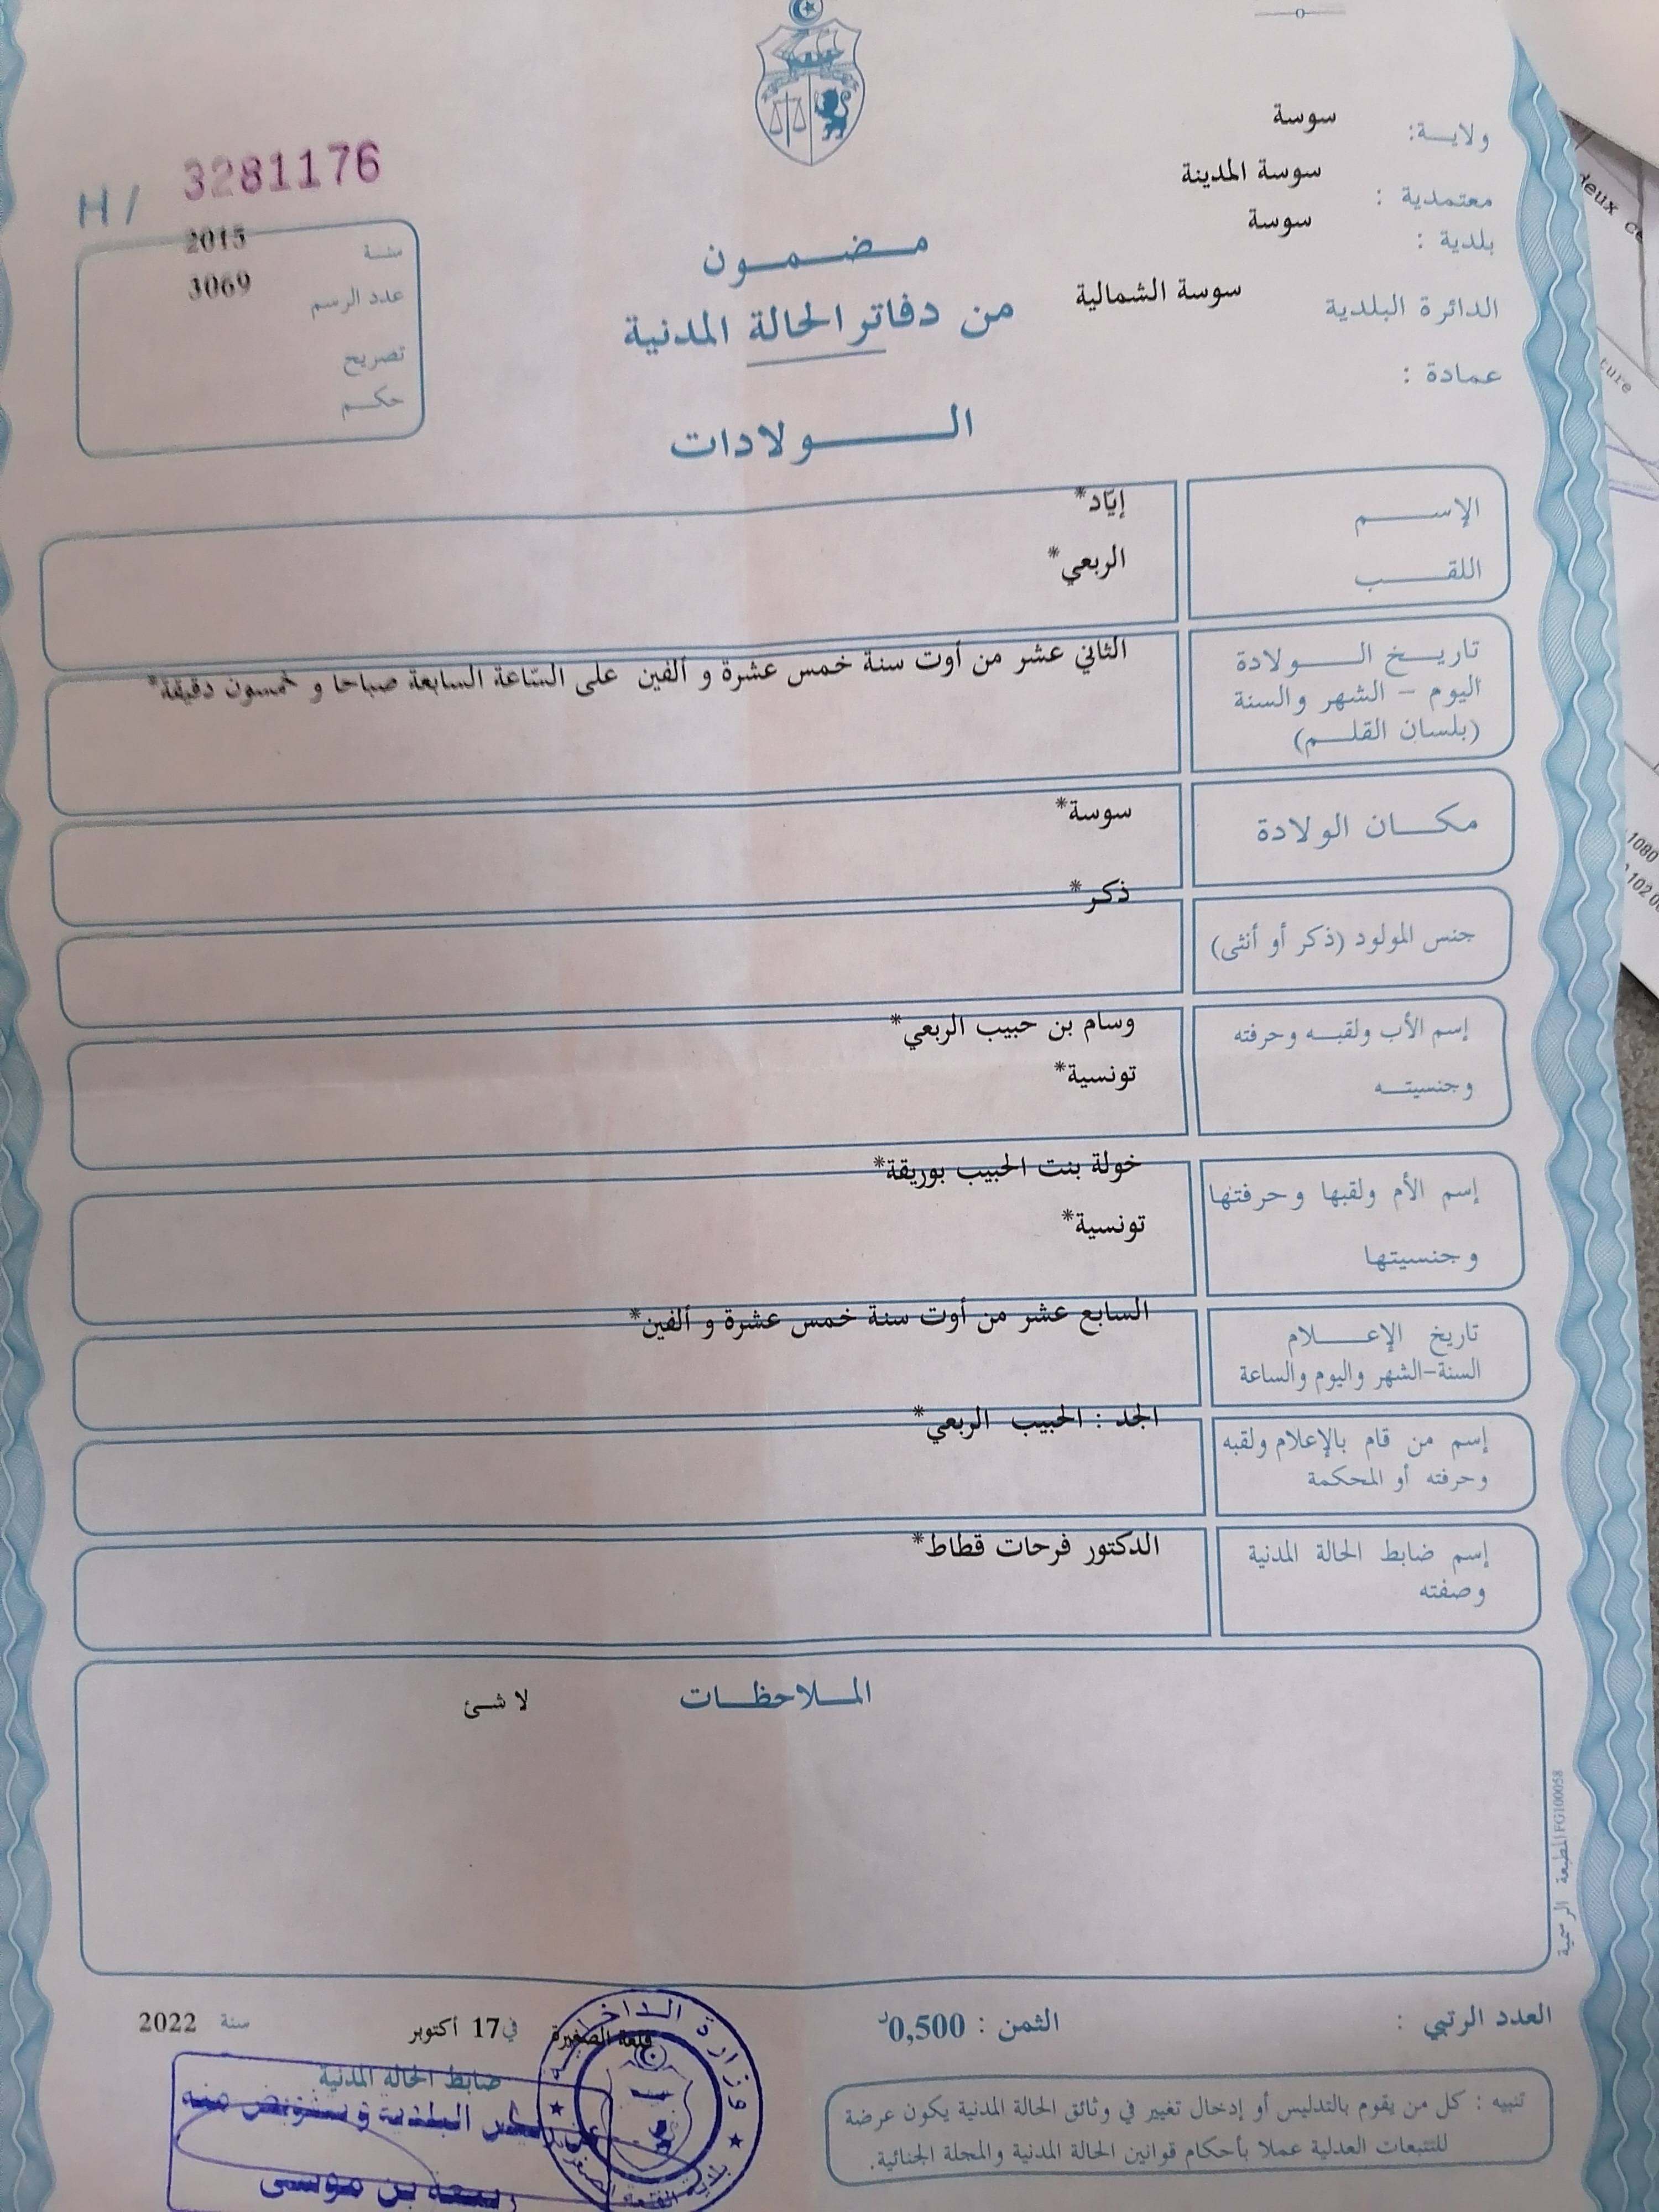 ولاية: سوسة
معتمدية : سوسة المدينة
بلدية : سوسة
الدائرة البلدية سوسة الشمالية
عمادة :
H / 3281176
سنة 2015
عدد الرسم 3069
تصريح
حكم
مضمون
من دفاتر الحالة المدنية
الولادات
الإسم إيّاد*
اللقب الربعي*
تاريخ الولادة الثاني عشر من أوت سنة خمس عشرة و ألفين على السّاعة السابعة صباحا و خمسون دقيقة*
اليوم - الشهر والسنة
(بلسان القلم)
مكان الولادة سوسة*
جنس المولود (ذكر أو أنثى) ذكر*
إسم الأب ولقبه وحرفته وسام بن حبيب الربعي*
وجنسيته تونسية*
إسم الأم ولقبها وحرفتها خولة بنت الحبيب بوريقة*
وجنسيتها تونسية*
تاريخ الإعلام السابع عشر من أوت سنة خمس عشرة و ألفين*
السنة-الشهر واليوم والساعة
إسم من قام بالإعلام ولقبه الجد : الحبيب الربعي*
وحرفته أو المحكمة
إسم ضابط الحالة المدنية الدكتور فرحات قطاط*
وصفته
الملاحظات لا شئ
المطبعة الرسمية FG100058
العدد الرتبي :
الثمن : 0,500د
قلعة الصغيرة في 17 أكتوبر سنة 2022
ضابط الحالة المدنية
عن رئيس البلدية و بتفويض منه
بن موسى
وزارة الداخلية
تنبيه : كل من يقوم بالتدليس أو إدخال تغيير في وثائق الحالة المدنية يكون عرضة
للتتبعات العدلية عملا بأحكام قوانين الحالة المدنية والمجلة الجنائية.
deux
ture
1080